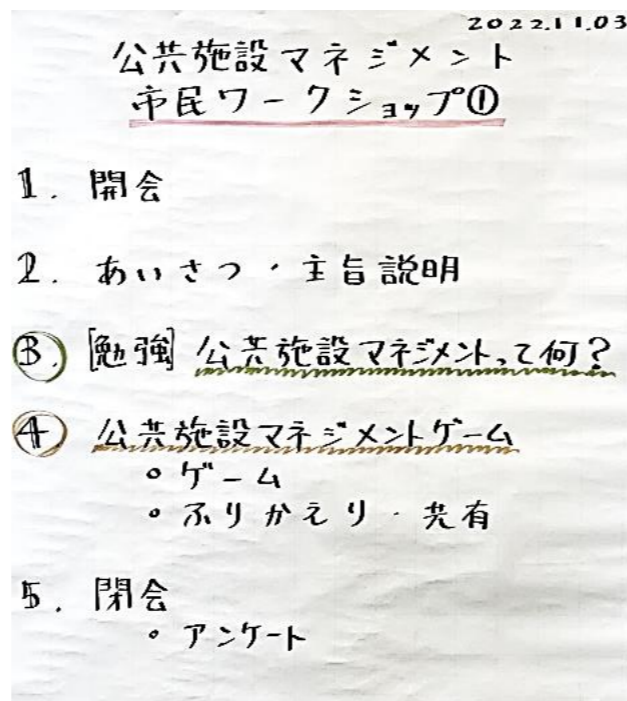 2022.11.03
公共施設マネジメント
市民ワークショップ①
1. 開会
2. あいさつ・主旨説明
3. [勉強] 公共施設マネジメントって何?
4 公共施設マネジメントゲーム
◦ ゲーム
◦ ふりかえり・共有
5. 閉会
◦ アンケート